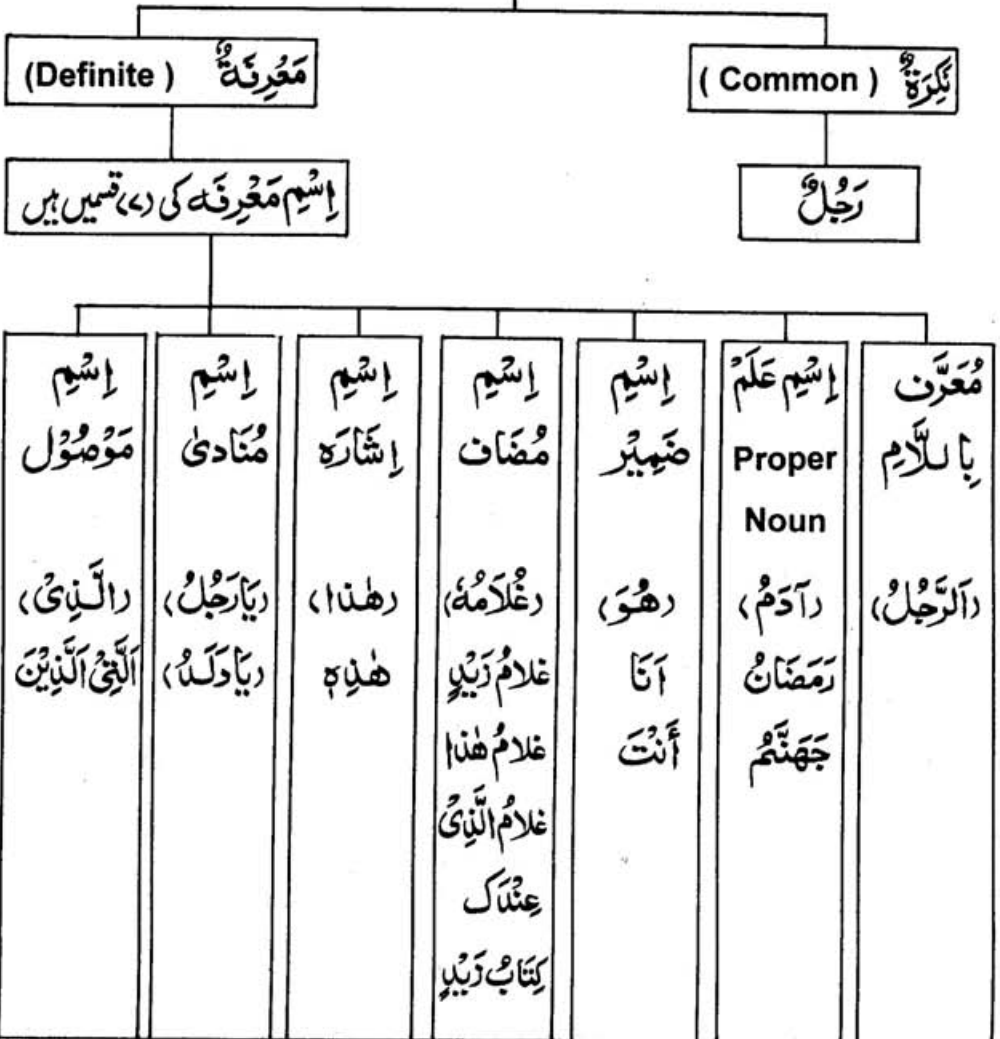 نَكِرَةٌ ( Common )
مَعْرِفَةٌ (Definite )
رَجُلٌ
اِسْمِ مَعْرِفَہ کی (۷) قسمیں ہیں
مُعَرَّف
بِاللَّامِ
(اَلرَّجُلُ)
اِسْمِ عَلَمْ
Proper
Noun
(آدَمُ)
رَمَضَانُ
جَهَنَّمُ
اِسْمِ
ضَمِيْر
(هُوَ)
اَنَا
أَنْتَ
اِسْمِ
مُضَاف
(غُلَامُهٗ)
غلامُ زَيْدٍ
غلامُ هٰذا
غلامُ الَّذِىْ
عِنْدَكَ
كِتَابُ زَيْدٍ
اِسْمِ
اِشَارَه
(هٰذا)
هٰذِهٖ
اِسْمِ
مُنَادىٰ
(يَارَجُلُ)
(يَاوَلَدُ)
اِسْمِ
مَوْصُوْل
(الَّذِىْ)
اَلَّتِىْ اَلَّذِيْنَ